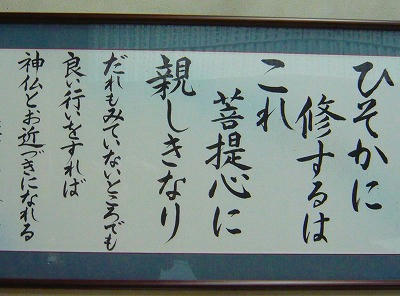 ひそかに
修するは
これ
菩提心に
親しきなり
だれもみていないところでも
良い行いをすれば
神仏とお近づきになれる